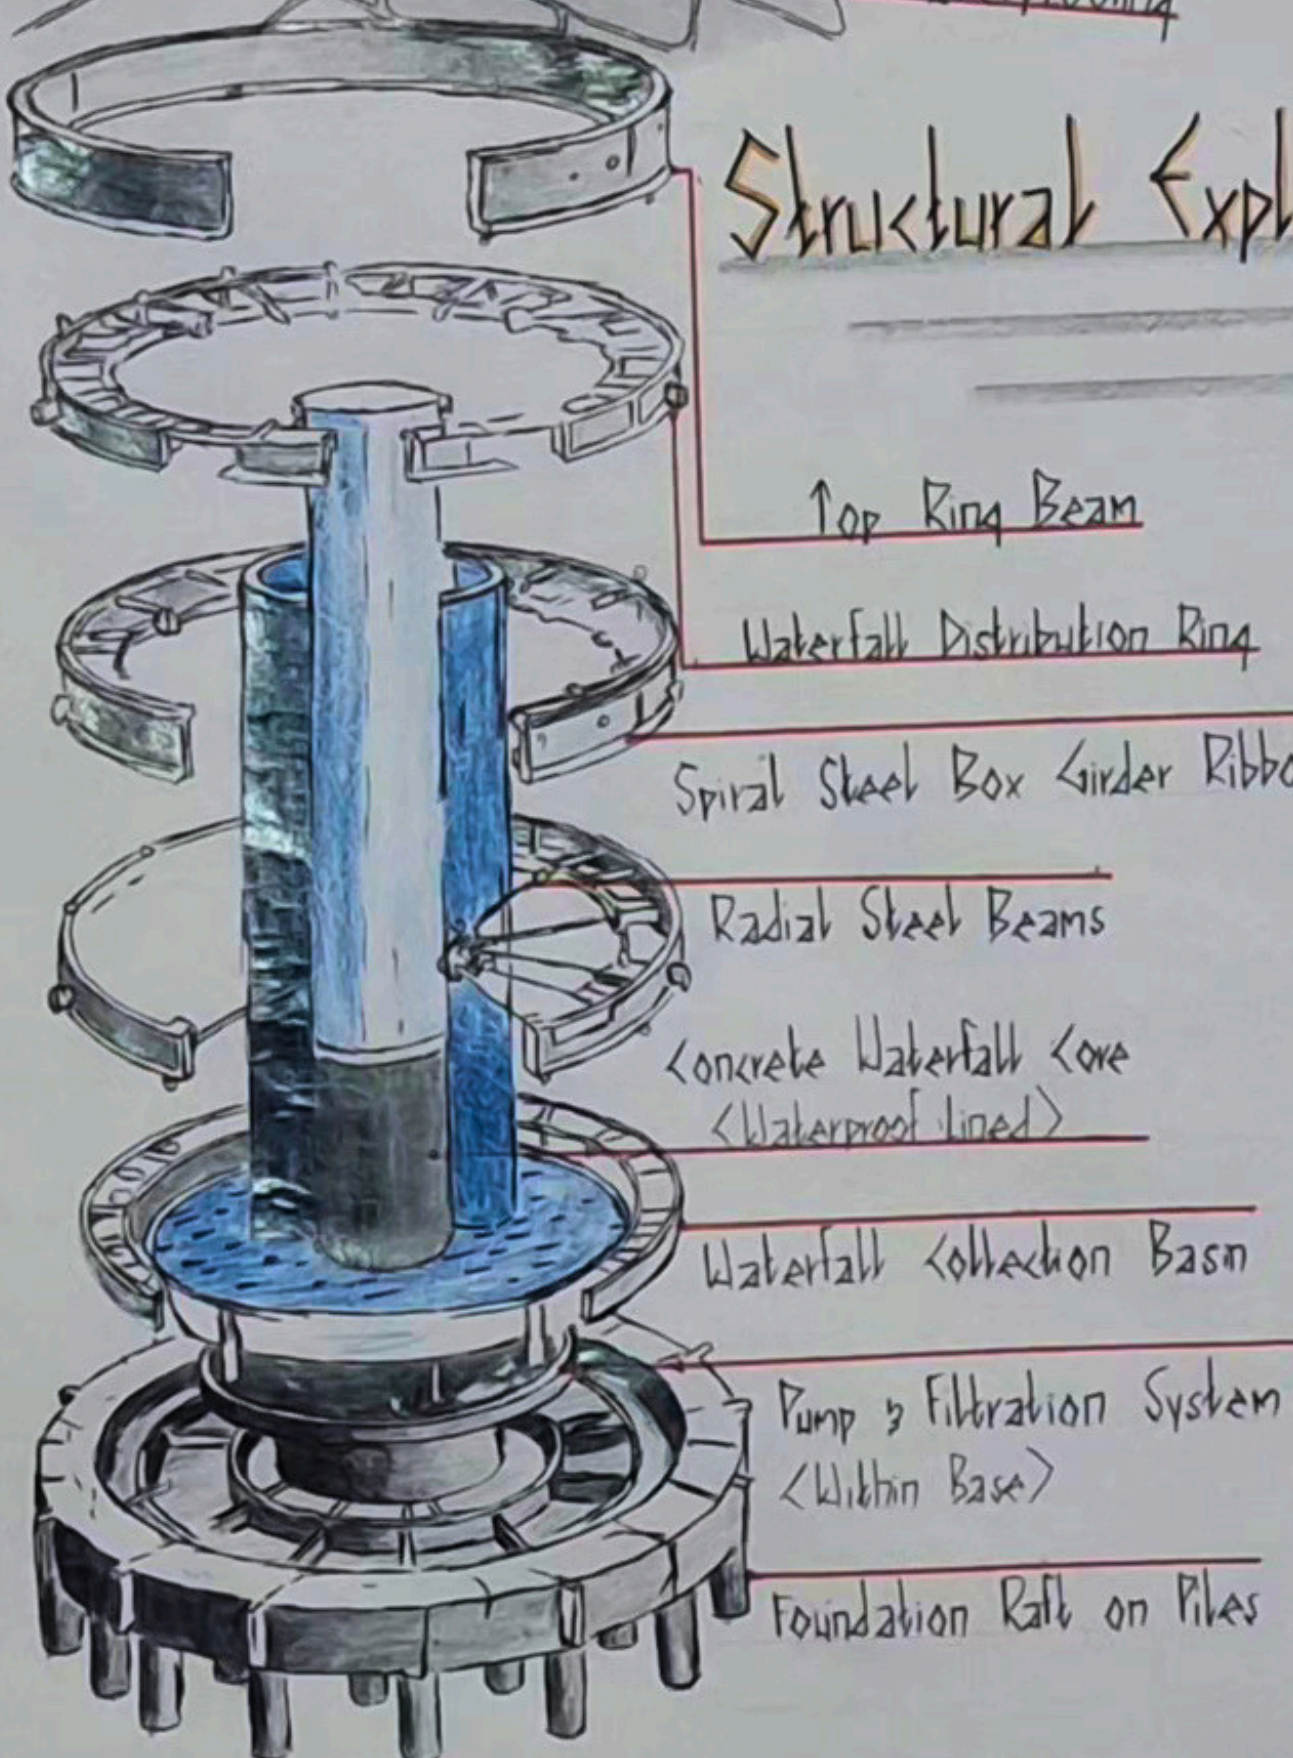 Structural Expl
Top Ring Beam
Waterfall Distribution Ring
Spiral Steel Box Girder Ribbo
Radial Steel Beams
Concrete Waterfall Core
<Waterproof Lined>
Waterfall Collection Basin
Pump & Filtration System
<Within Base>
Foundation Raft on Piles